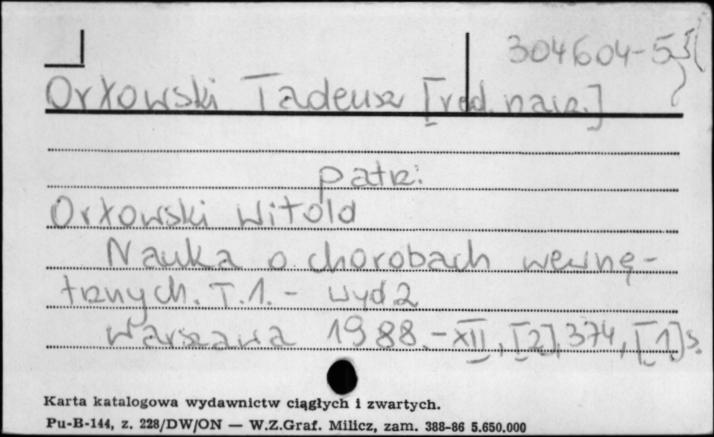 304604-5
Orłowski Tadeusz [red. nacz.]
patrz:
Orłowski Witold
Nauka o chorobach wewnę-
trznych. T.1. - wyd.2
Warszawa 1988. - XII, [2], 374, [1] s.
Karta katalogowa wydawnictw ciągłych i zwartych.
Pu-B-144, z. 228/DW/ON — W.Z.Graf. Milicz, zam. 388-86 5.650.000